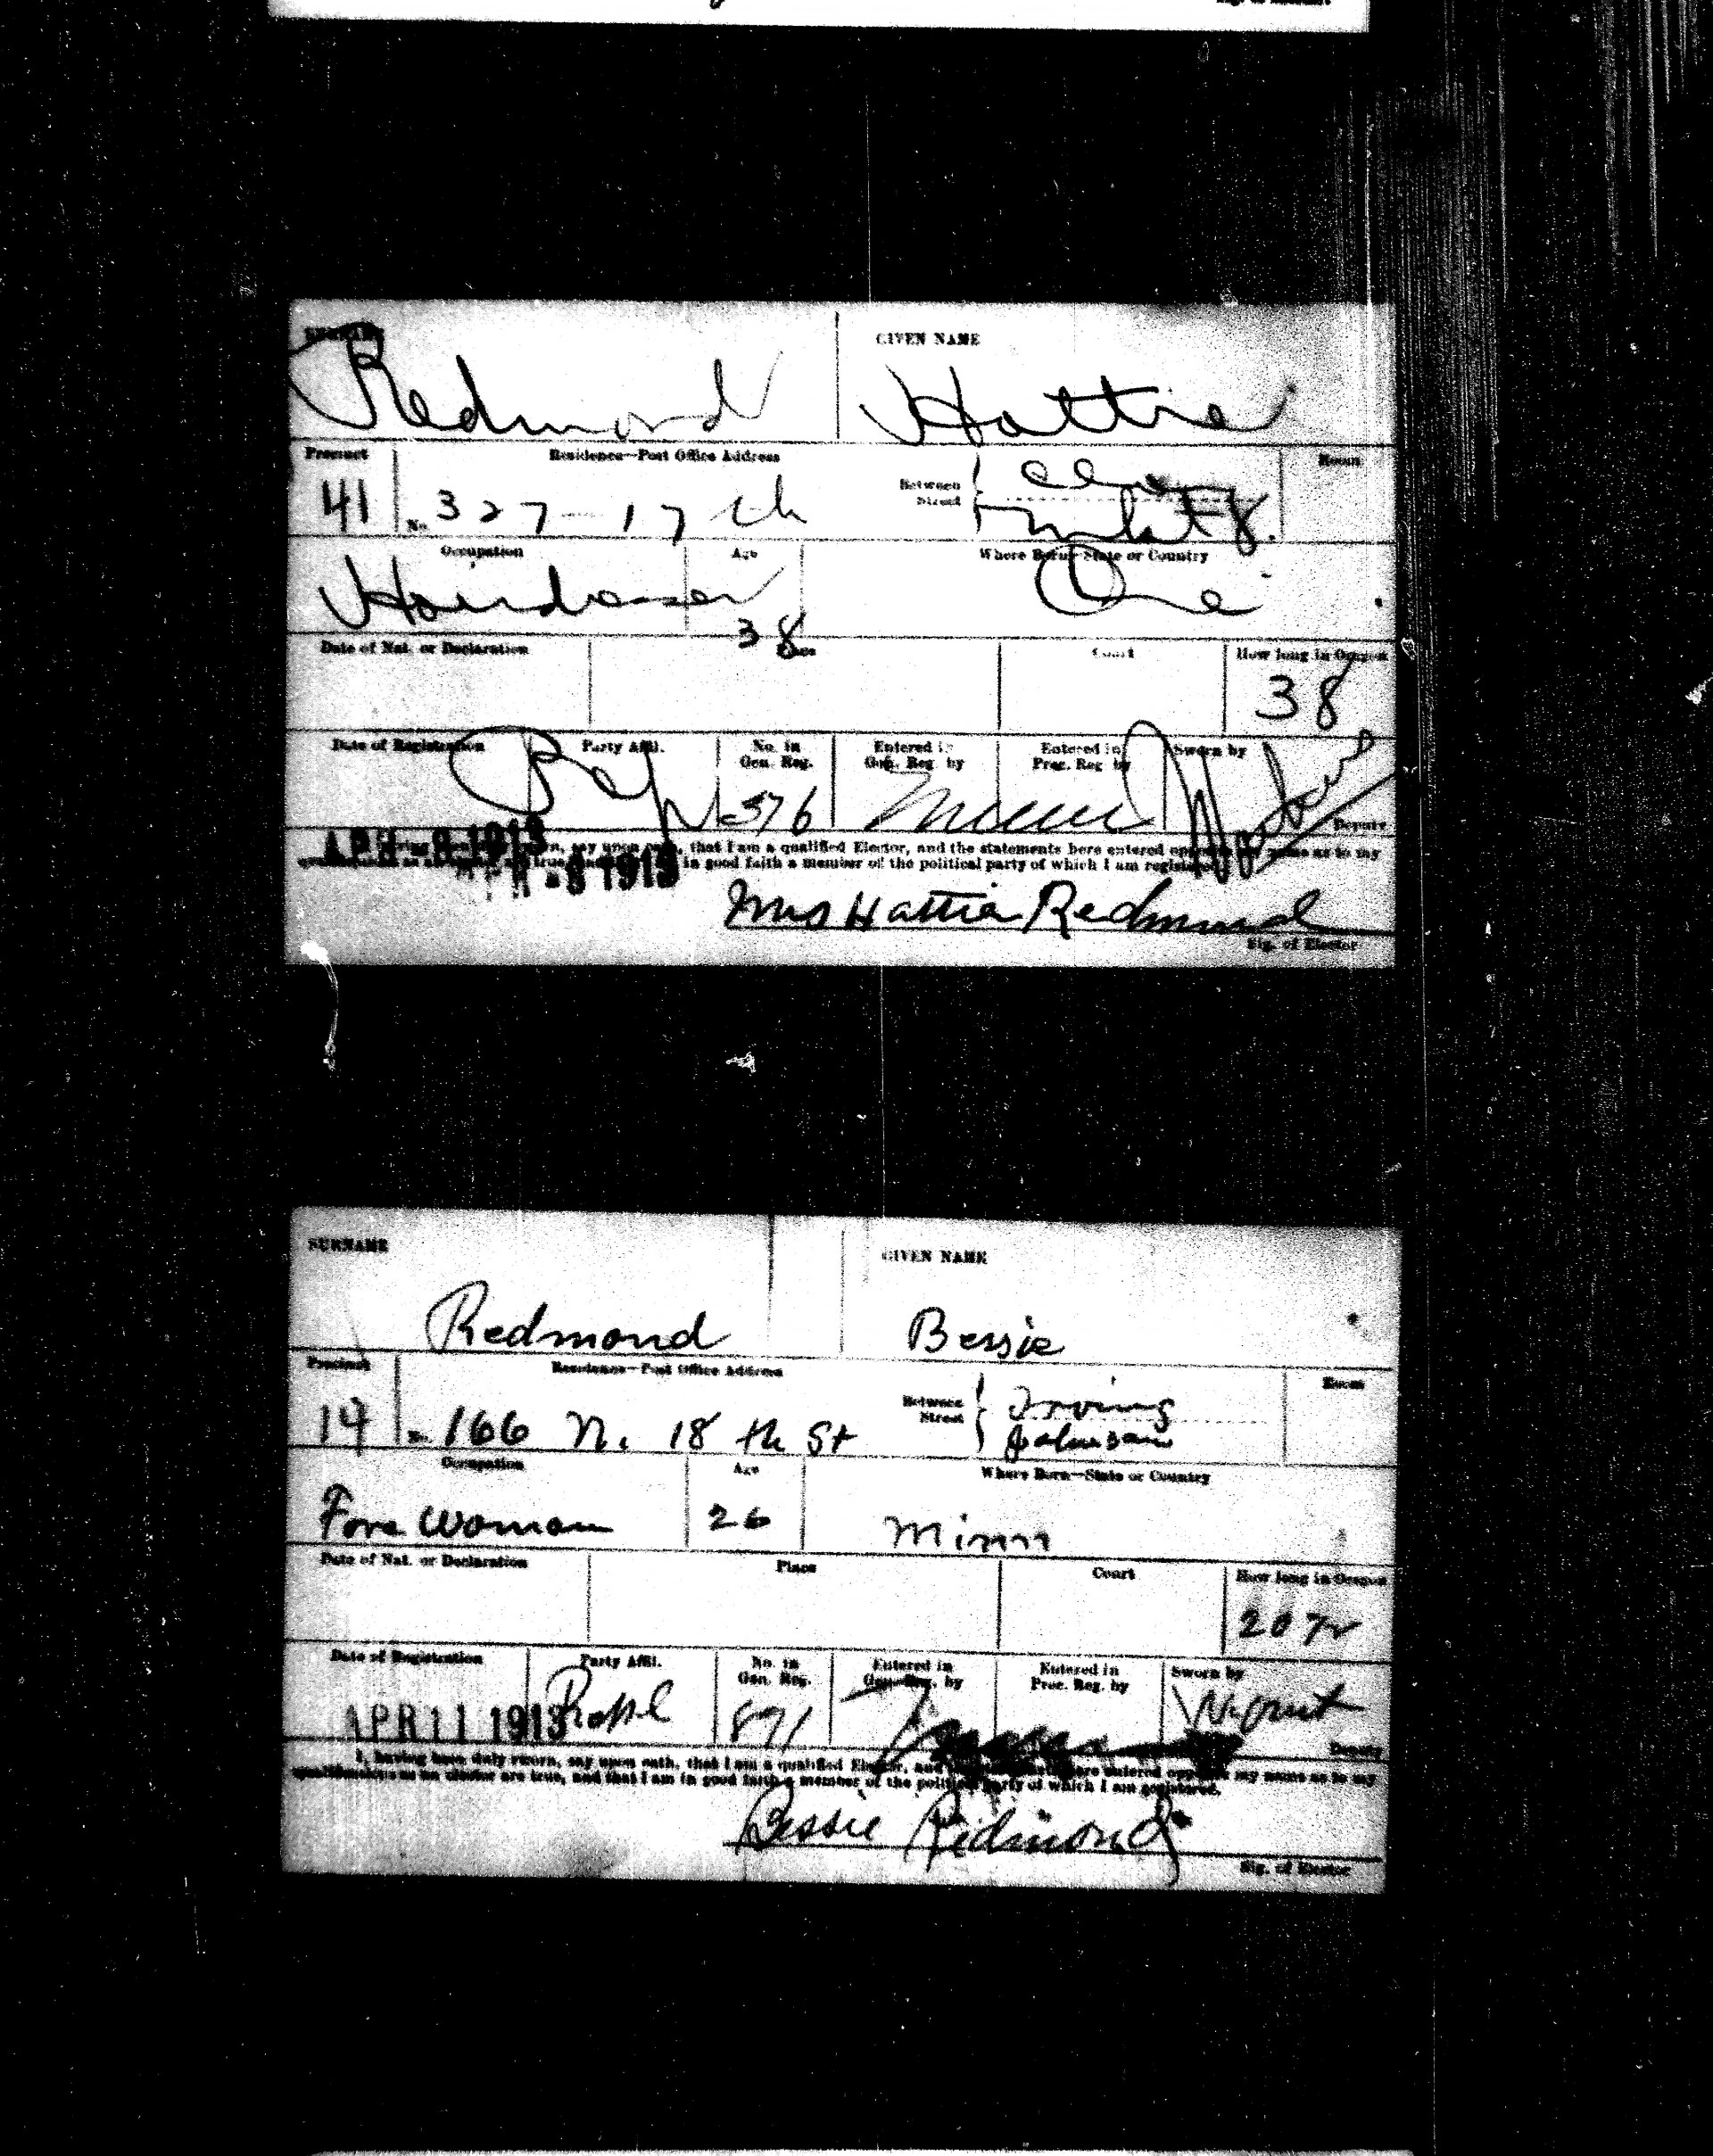 Sig. of Elector.
SURNAME GIVEN NAME
Redmond Hattie
Precinct Residence—Post Office Address Between Street Room
41 No. 327-17th
Occupation Age Where Born—State or Country
Hairdresser 38 Ore
Date of Nat. or Declaration Court How long in Oregon
38
Date of Registration Party Affil. No. in Gen. Reg. Entered in Gen. Reg by Entered in Prec. Reg by Sworn by
Rep 576
Deputy
APR -8 1913
that I am a qualified Elector, and the statements here entered my name as to my
true, in good faith a member of the political party of which I am registered
APR -8 1913
Mrs Hattie Redmond
Sig. of Elector
SURNAME GIVEN NAME
Redmond Bessie
Precinct Residence—Post Office Address Between Street Irving Room
14 No. 166 N. 18 th St Johnson
Occupation Age Where Born—State or Country
Fore Woman 26 Minn
Date of Nat. or Declaration Place Court How long in Oregon
20 yr
Date of Registration Party Affil. No. in Gen. Reg. Entered in Gen. Reg. by Entered in Prec. Reg. by Sworn by
APR 11 1913 891
Deputy
I, having been duly sworn, say upon oath, that I am a qualified Elector, and are entered opposite my name as to my
qualifications as an elector are true, and that I am in good faith a member of the political party of which I am registered.
Bessie Redmond
Sig. of Elector